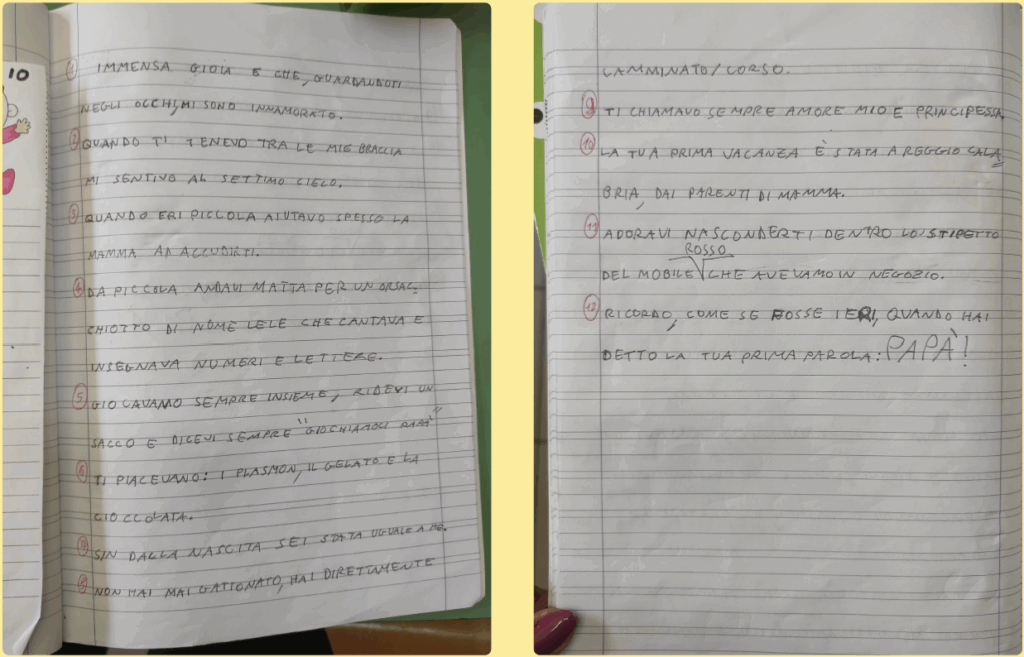 10
1 IMMENSA GIOIA E CHE, GUARDANDOTI
NEGLI OCCHI, MI SONO INNAMORATO.
2 QUANDO TI TENEVO TRA LE MIE BRACCIA
MI SENTIVO AL SETTIMO CIELO.
3 QUANDO ERI PICCOLA AIUTAVO SPESSO LA
MAMMA AD ACCUDIRTI.
4 DA PICCOLA ANDAVI MATTA PER UN ORSAC
CHIOTTO DI NOME LELE CHE CANTAVA E
INSEGNAVA NUMERI E LETTERE.
5 GIOCAVAMO SEMPRE INSIEME, RIDEVI UN
SACCO E DICEVI SEMPRE "GIOCHIAMOLI PAPÀ"
6 TI PIACEVANO: I PLASMON, IL GELATO E LA
CIOCCOLATA.
SIN DALLA NASCITA SEI STATA UGUALE A ME.
8 NON HAI MAI GATTONATO, HAI DIRETTAMENTE
CAMMINATO/CORSO.
9 TI CHIAMAVO SEMPRE AMORE MIO E PRINCIPESSA
10 LA TUA PRIMA VACANZA È STATA A REGGIO CALA
BRIA, DAI PARENTI DI MAMMA.
11 ADORAVI NASCONDERTI DENTRO LO STIPETTO
ROSSO
DEL MOBILE CHE AVEVAMO IN NEGOZIO.
12 RICORDO, COME SE FOSSE IERI, QUANDO HAI
DETTO LA TUA PRIMA PAROLA: PAPÀ!